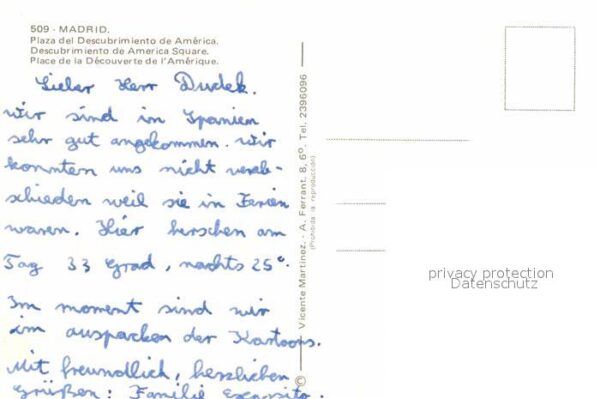 509 - MADRID.
Plaza del Descubrimiento de América.
Descubrimiento de America Square.
Place de la Découverte de l'Amérique.
Lieber Herr Dudek.
wir sind im Spanien
sehr gut angekommen. wir
konnten uns nicht verab-
schieden weil sie in Ferien
waren. Hier herschen am
Tag 33 Grad, nachts 25°.
Im moment sind wir
im auspacken der Kartoops.
Mit freundlich, herzlichen
Grüßen: Familie
© Vicente Martinez. - A. Ferrant. 8, 6º. Tel. 2396096
(Prohibida la reproducción)
privacy protection
Datenschutz